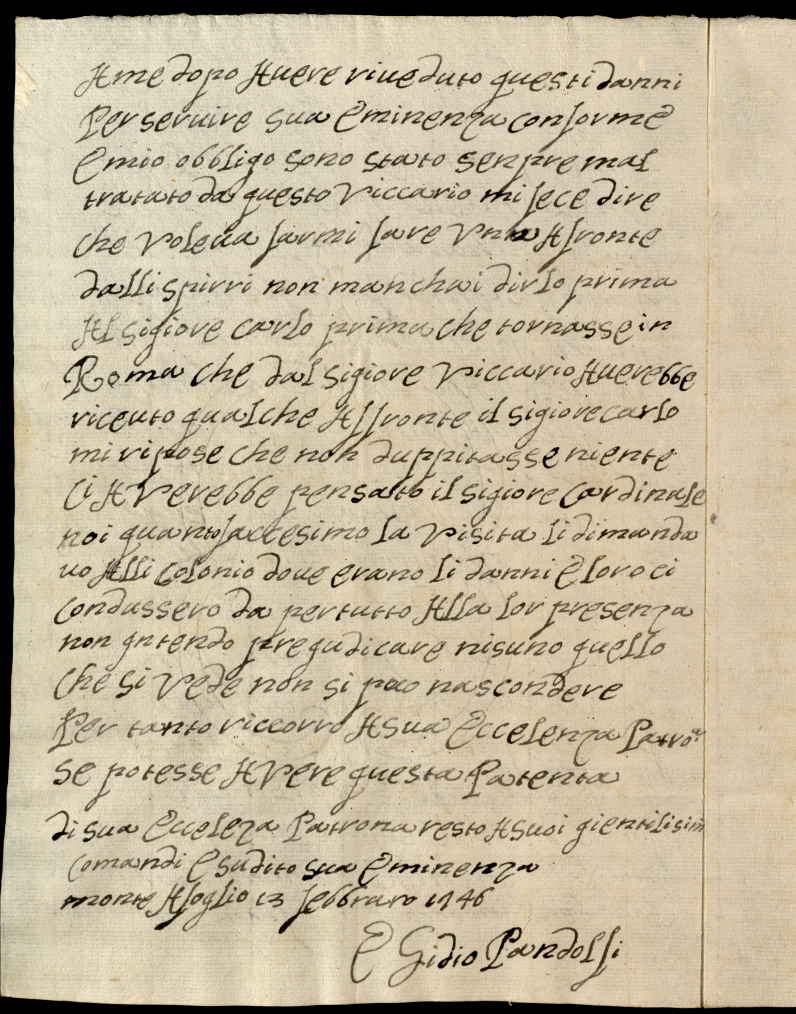 A me dopo Auere riueduto questi danni
Per seruire sua Eminenza conforme
E mio obbligo sono stato senpre mal
tratato da questo Viccario mi fece dire
che Voleua farmi fare Vna Afronte
dalli spirri non manchai dirlo prima
Al sigiore carlo prima che tornasse in
Roma che dal sigiore Viccario Auerebbe
riceuto qualche Affronte il sigiore carlo
mi ripose che non duppitasse niente
Ci AVerebbe pensato il sigiore Cardinale
noi quanto faccesimo la Visita li dimanda
uo Alli Colonio doue erano li danni E loro ci
Condussero da per tutto Alla lor presenza
non intendo pregudicare nisuno quello
Che si Vede non si puo nascondere
Per tanto riccorro A sua Eccelenza Patro.na
se potesse AVere questa Patenta
di sua Ecceleza Patrona resto A suoi gientilisim
Comandi E sudito sua Eminenza
monte Afoglio 13 febbraro 1746
E Gidio Pandolfi